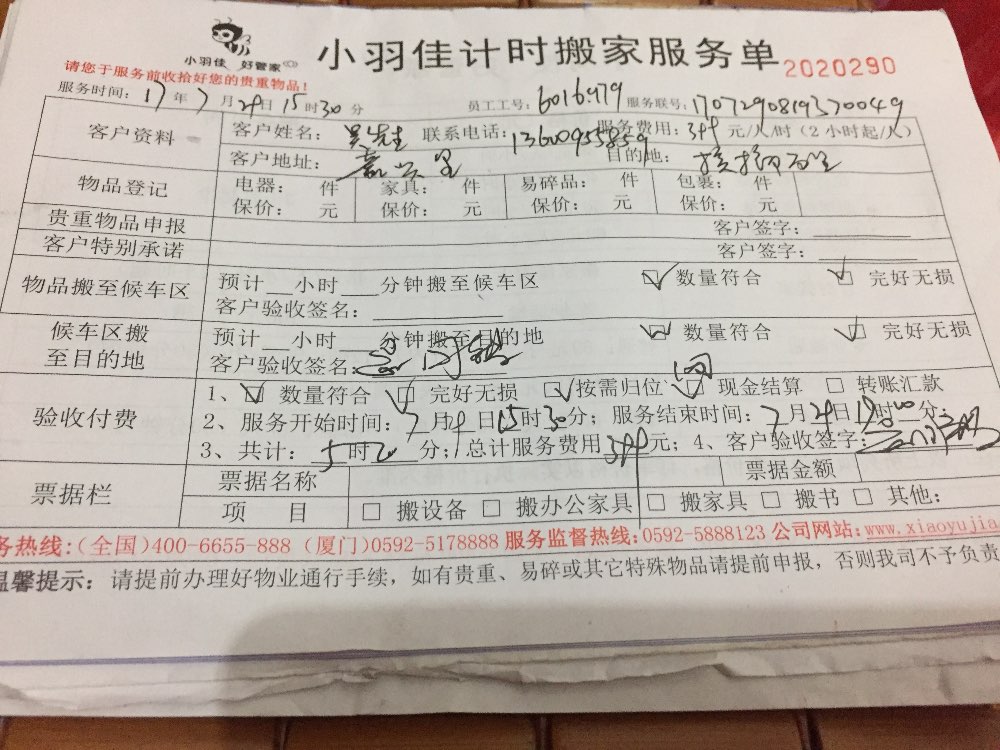 小羽佳 好管家
小羽佳计时搬家服务单 2020290
请您于服务前收拾好您的贵重物品!
服务时间: 17 年 7 月 29 日 15 时 30 分 员工工号: 服务联号: 1707290819370049
客户资料 客户姓名: 吴先生 联系电话: 13600955859 服务费用: 元/人/时 (2 小时起/人)
客户地址: 嘉兴里 目的地:
物品登记 电器: 件 家具: 件 易碎品: 件 包裹: 件
保价: 元 保价: 元 保价: 元 保价: 元
贵重物品申报 客户签字:
客户特别承诺 客户签字:
物品搬至候车区 预计 小时 分钟搬至候车区 数量符合 完好无损
客户验收签名:
候车区搬至目的地 预计 小时 分钟搬至目的地 数量符合 完好无损
客户验收签名:
验收付费 1、 数量符合 完好无损 按需归位 现金结算 转账汇款
2、服务开始时间: 7 月 日 15 时 30 分; 服务结束时间: 7 月 29 日 时 分;
3、共计: 5 时 20 分; 总计服务费用 元; 4、客户验收签字:
票据栏 票据名称 票据金额
项 目 搬设备 搬办公家具 搬家具 搬书 其他:
务热线:(全国)400-6655-888 (厦门)0592-5178888 服务监督热线:0592-5888123 公司网站: www.xiaoyujia
温馨提示: 请提前办理好物业通行手续, 如有贵重、易碎或其它特殊物品请提前申报, 否则我司不予负责